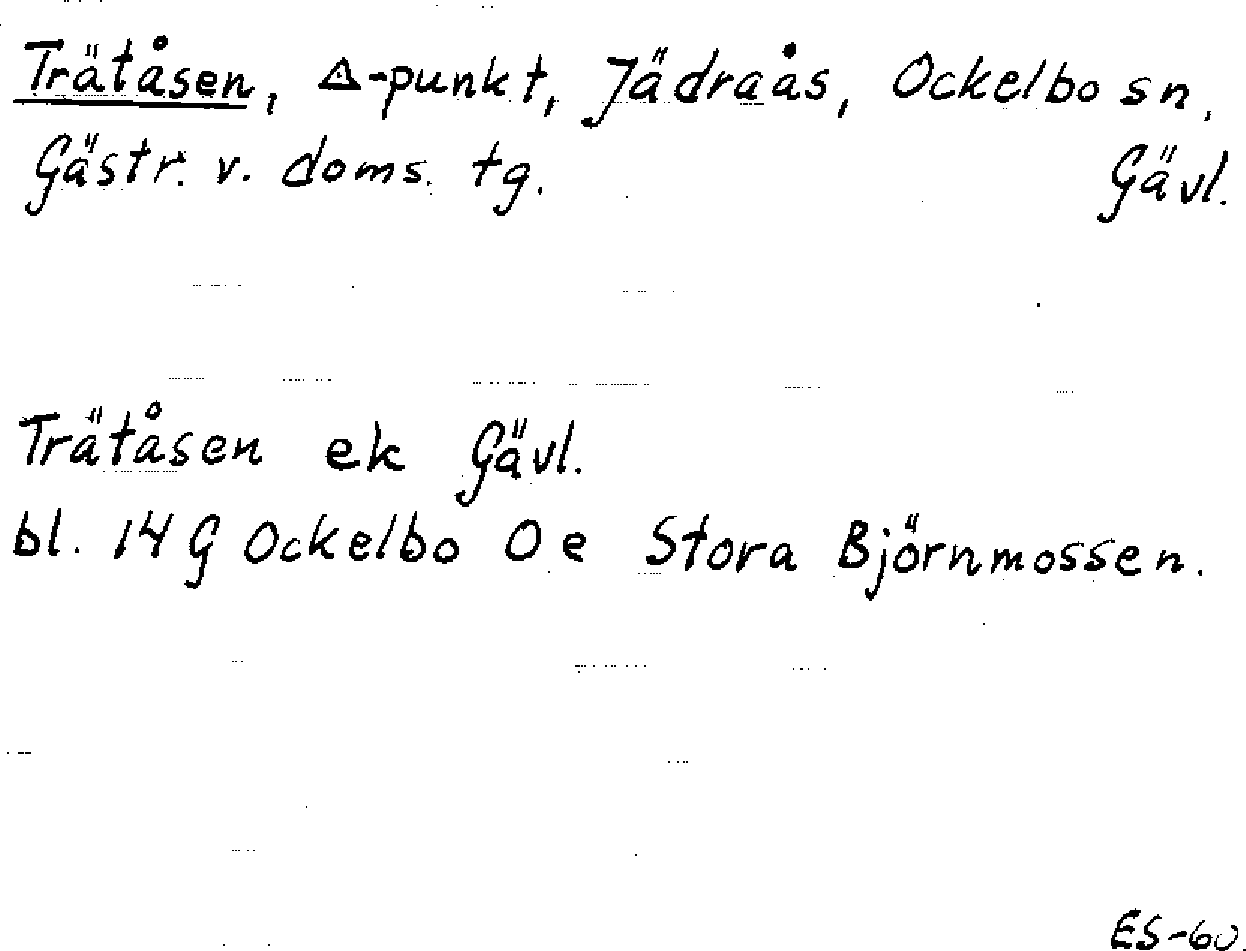 Trätåsen, △-punkt, Jädraås, Ockelbo sn,
Gästr. v. doms. tg. Gävl.
Trätåsen ek Gävl.
bl. 14 G Ockelbo 0 e Stora Björnmossen.
ES-60.